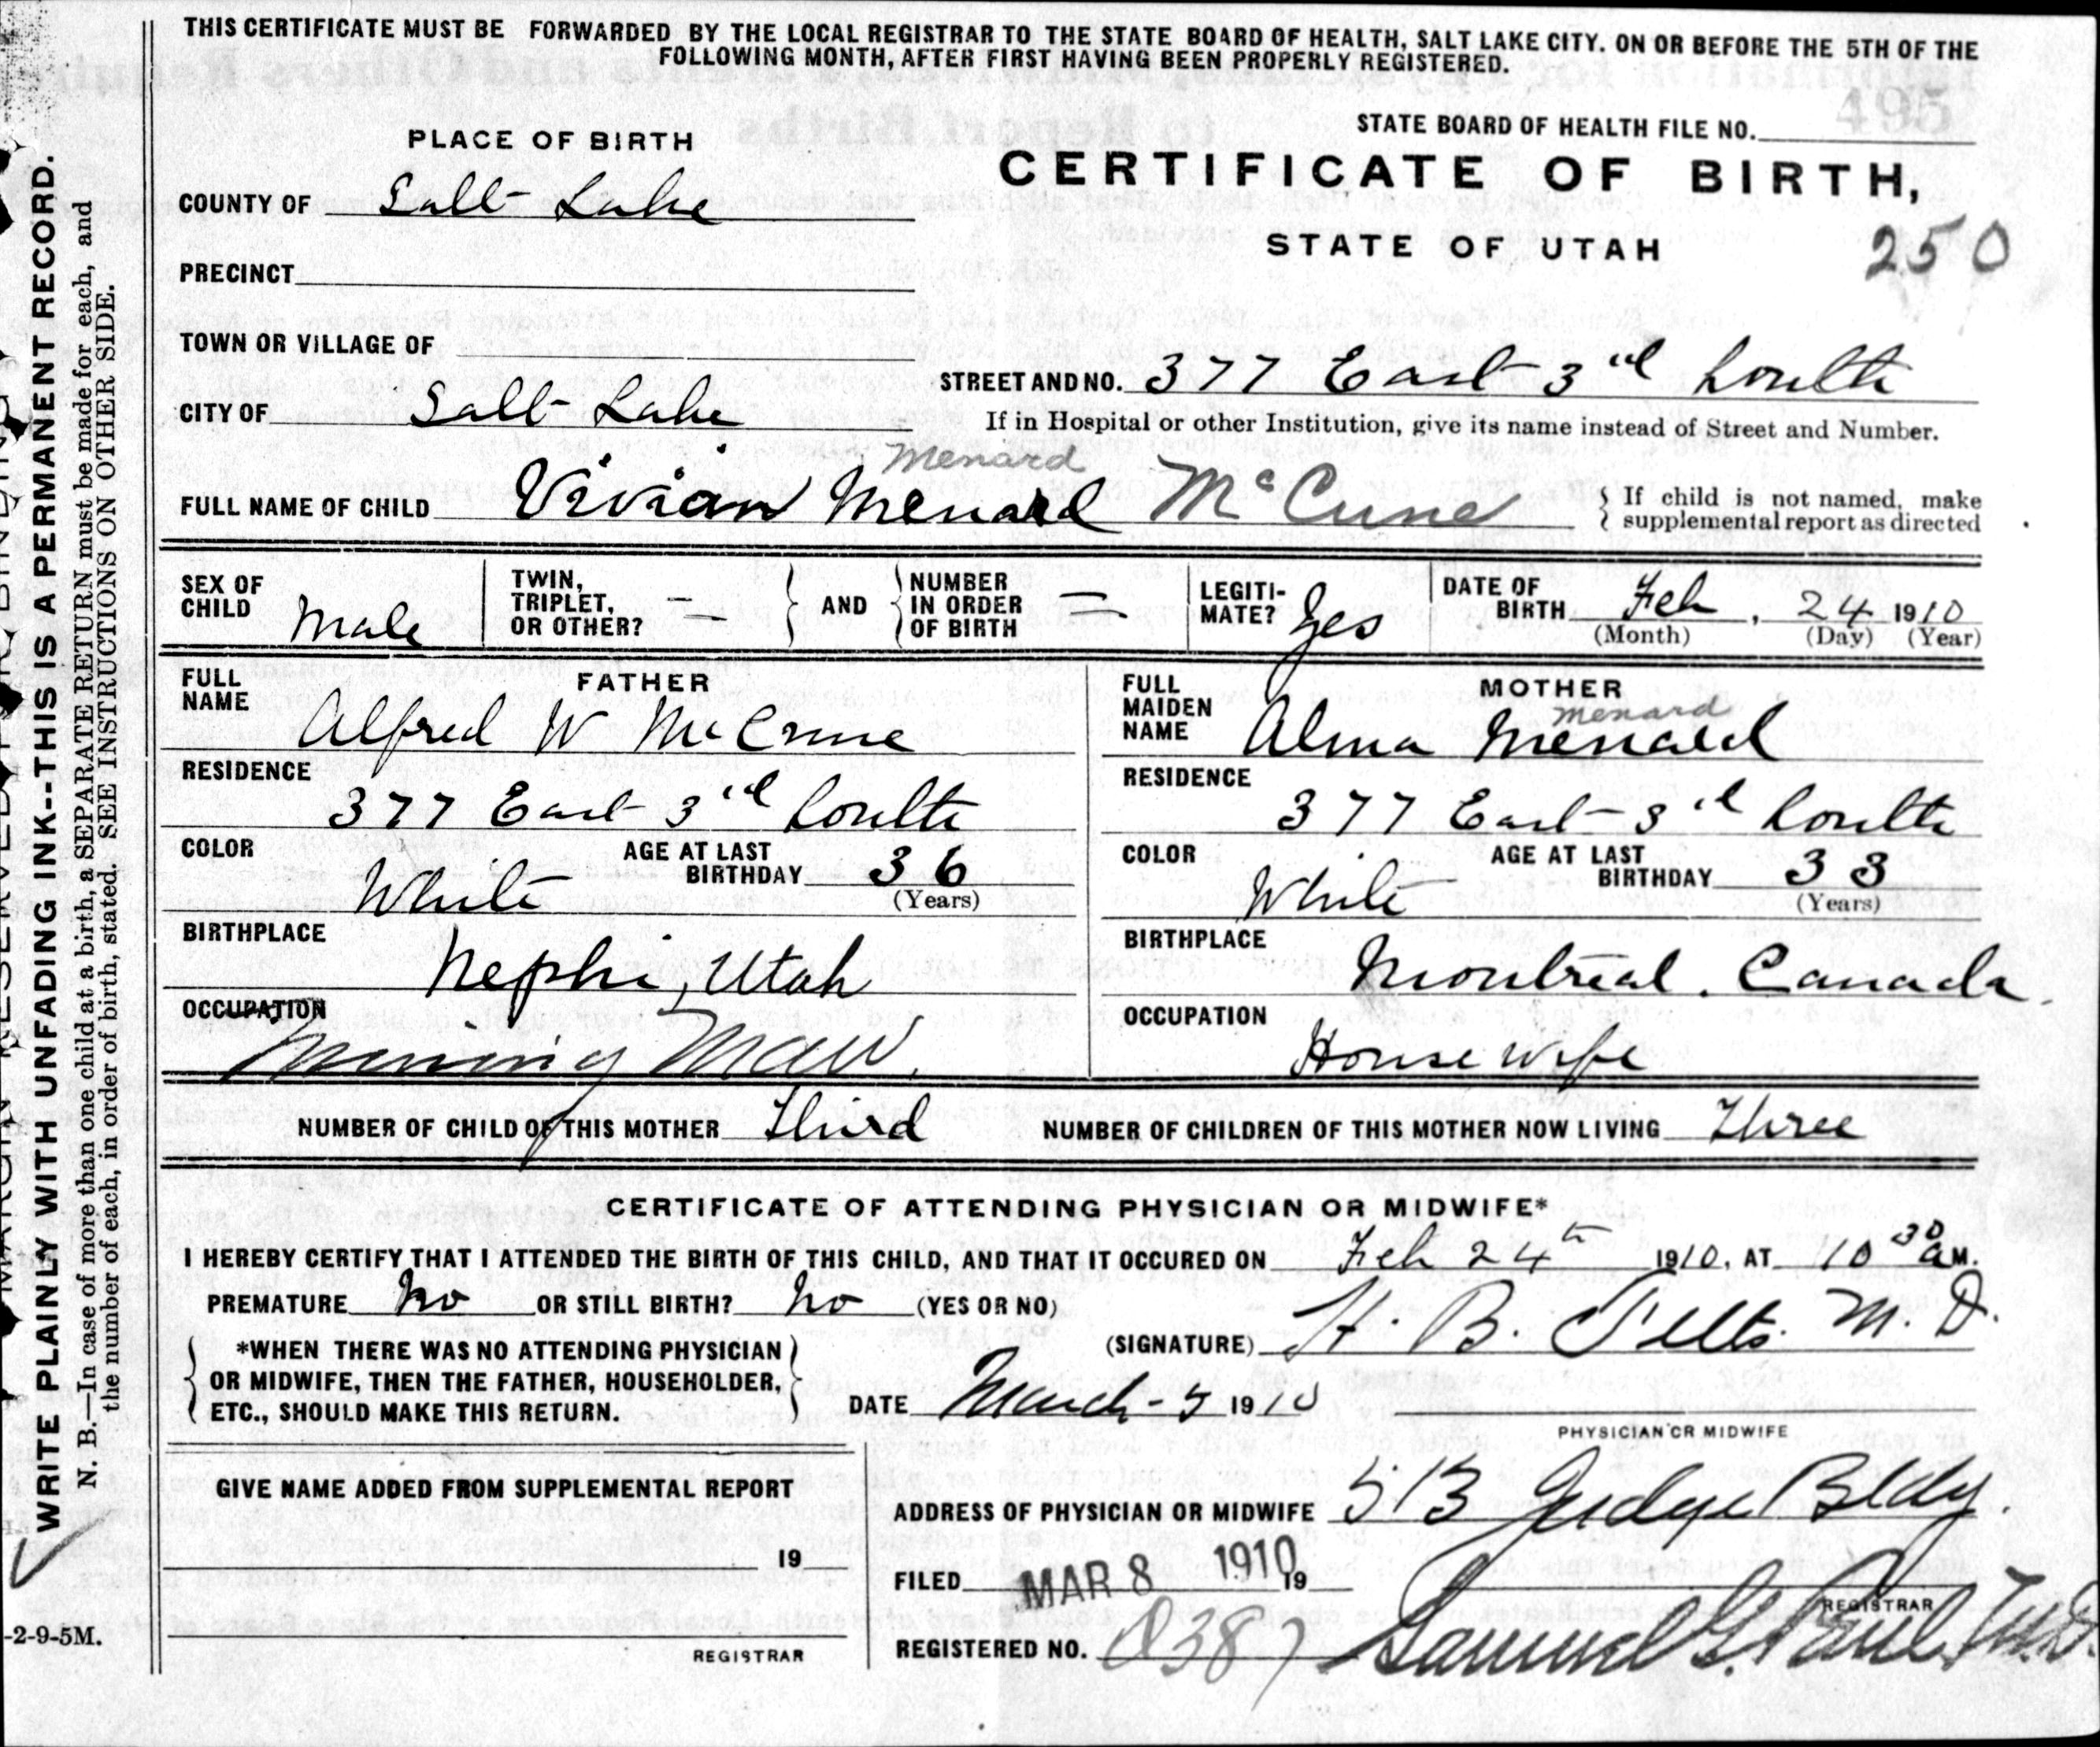 THIS CERTIFICATE MUST BE FORWARDED BY THE LOCAL REGISTRAR TO THE STATE BOARD OF HEALTH, SALT LAKE CITY. ON OR BEFORE THE 5TH OF THE
FOLLOWING MONTH, AFTER FIRST HAVING BEEN PROPERLY REGISTERED.
STATE BOARD OF HEALTH FILE NO. 495
PLACE OF BIRTH
CERTIFICATE OF BIRTH,
COUNTY OF Salt Lake
STATE OF UTAH
250
PRECINCT
TOWN OR VILLAGE OF
STREET AND NO. 377 East 3rd South
CITY OF Salt Lake
If in Hospital or other Institution, give its name instead of Street and Number.
Menard
FULL NAME OF CHILD Vivian Menard McCune
If child is not named, make
supplemental report as directed
SEX OF CHILD Male
TWIN, TRIPLET, OR OTHER? —
AND
NUMBER IN ORDER OF BIRTH —
LEGITIMATE? Yes
DATE OF BIRTH Feb, 24 1910
(Month) (Day) (Year)
FATHER
FULL NAME Alfred W McCune
RESIDENCE
377 East 3rd South
COLOR White
AGE AT LAST BIRTHDAY 36
(Years)
BIRTHPLACE
Nephi, Utah
OCCUPATION
Mining Man.
MOTHER
Menard
FULL MAIDEN NAME Alma Menard
RESIDENCE
377 East 3rd South
COLOR White
AGE AT LAST BIRTHDAY 33
(Years)
BIRTHPLACE
Montreal. Canada.
OCCUPATION
House wife
NUMBER OF CHILD OF THIS MOTHER Third
NUMBER OF CHILDREN OF THIS MOTHER NOW LIVING Three
CERTIFICATE OF ATTENDING PHYSICIAN OR MIDWIFE*
I HEREBY CERTIFY THAT I ATTENDED THE BIRTH OF THIS CHILD, AND THAT IT OCCURED ON Feb 24th 1910, AT 10 30 a M.
PREMATURE no OR STILL BIRTH? no (YES OR NO)
(SIGNATURE) H. B. Felts. M. D.
*WHEN THERE WAS NO ATTENDING PHYSICIAN
OR MIDWIFE, THEN THE FATHER, HOUSEHOLDER,
ETC., SHOULD MAKE THIS RETURN.
DATE March - 5 1910
PHYSICIAN OR MIDWIFE
GIVE NAME ADDED FROM SUPPLEMENTAL REPORT
19
REGISTRAR
ADDRESS OF PHYSICIAN OR MIDWIFE 513 Judge Bldg.
FILED MAR 8 1910 19
REGISTRAR
REGISTERED NO. 0387 Samuel G. Paul, M.D.
WRITE PLAINLY WITH UNFADING INK--THIS IS A PERMANENT RECORD.
N. B.—In case of more than one child at a birth, a SEPARATE RETURN must be made for each, and
the number of each, in order of birth, stated. SEE INSTRUCTIONS ON OTHER SIDE.
-2-9-5M.